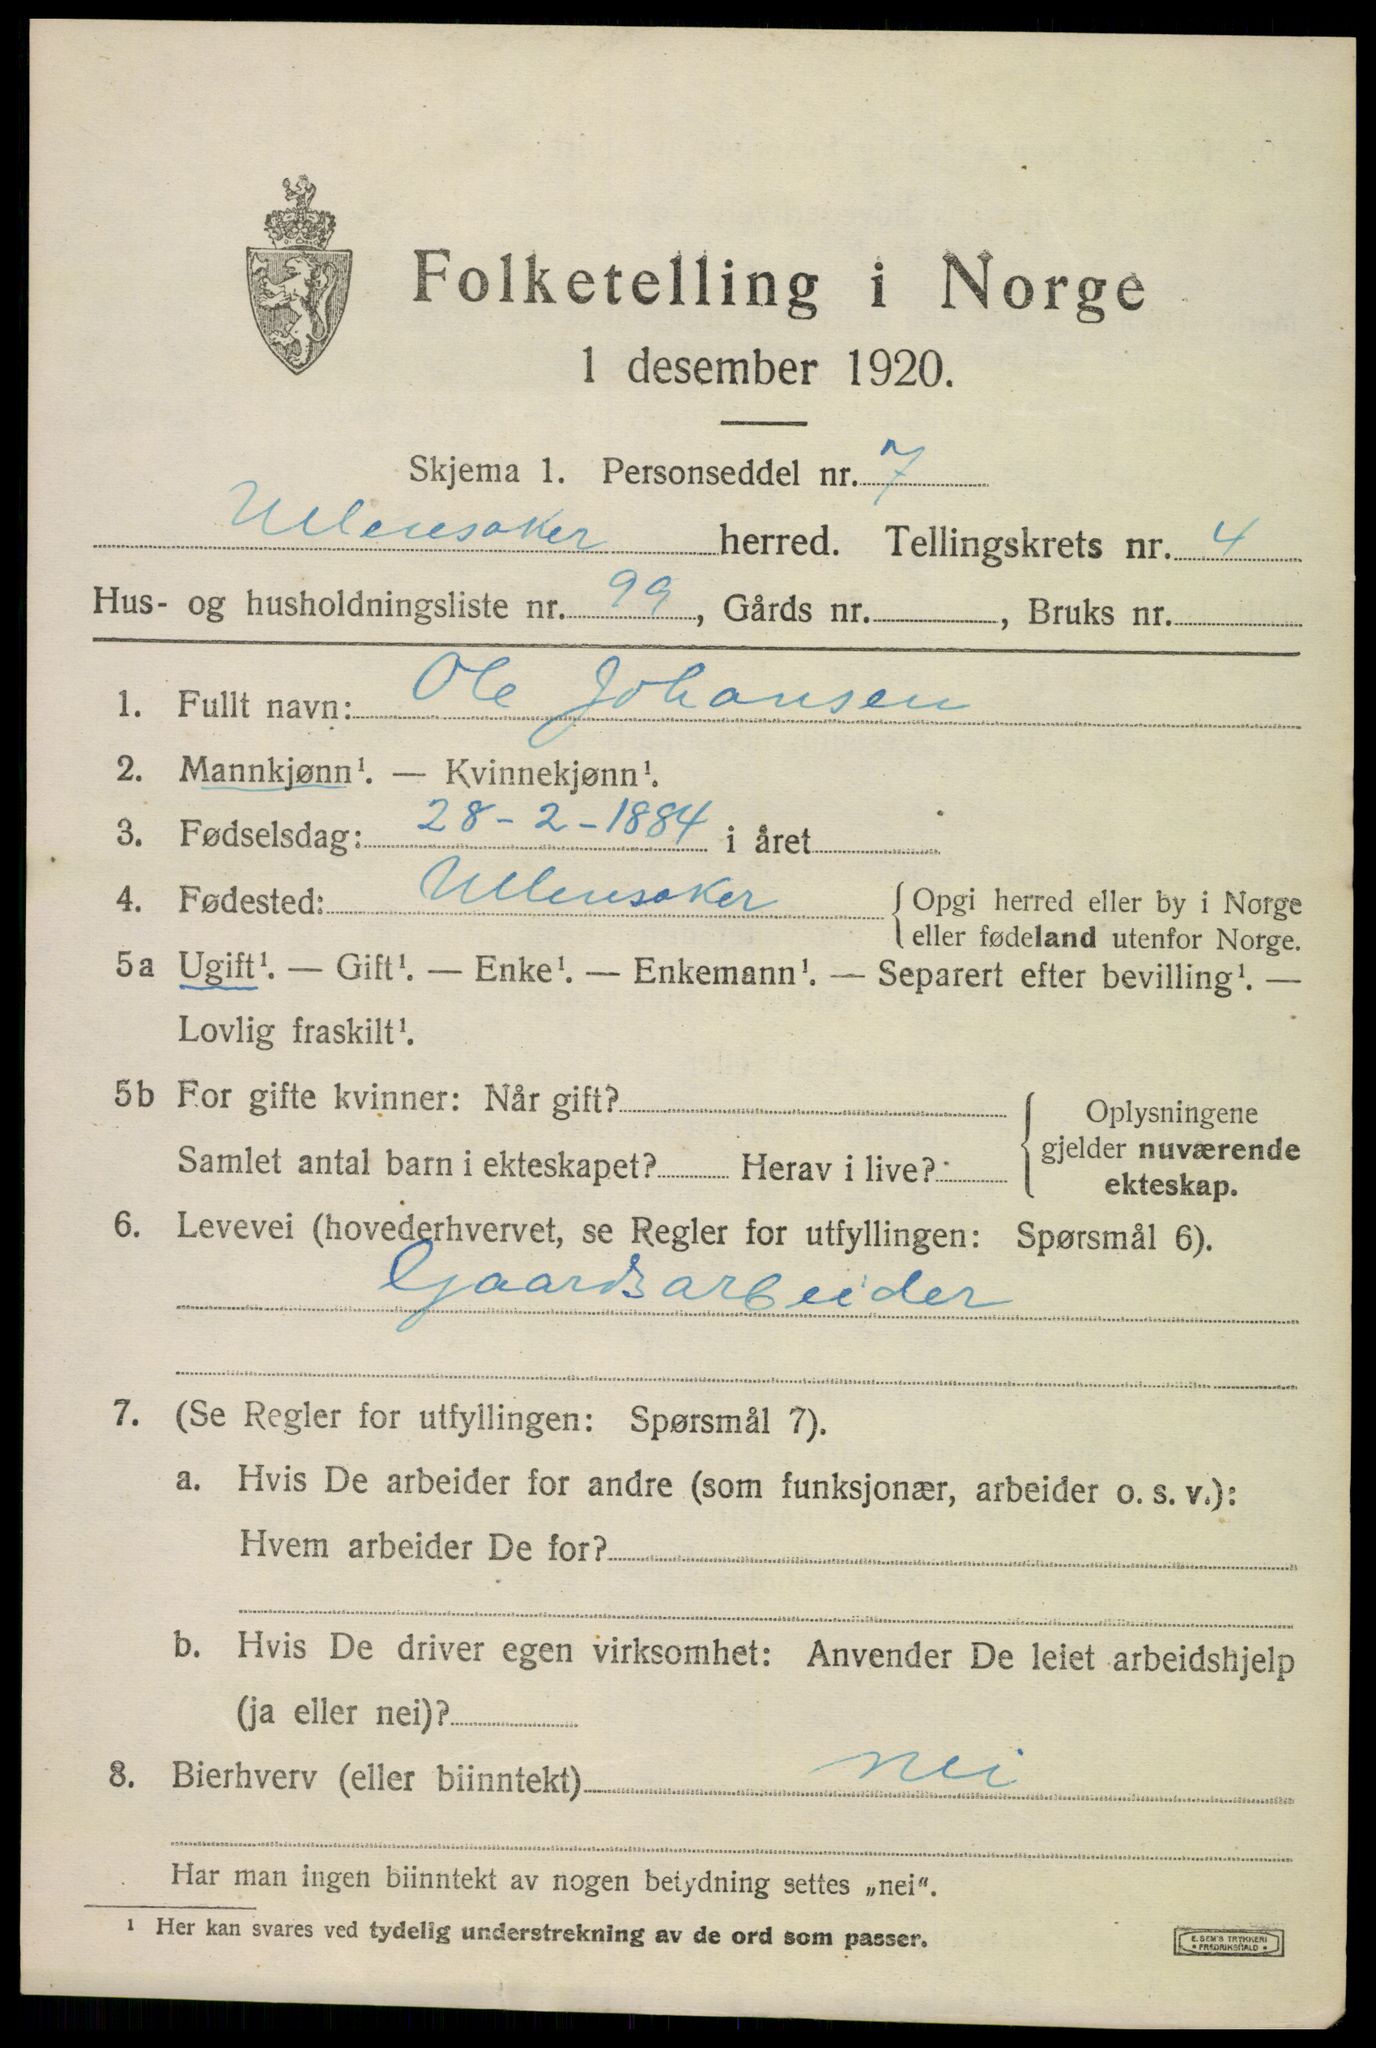 Folketelling i Norge
1 desember 1920.
Skjema 1. Personseddel nr. 7
Ullensaker herred. Tellingskrets nr. 4
Hus- og husholdningsliste nr. 99, Gårds nr. , Bruks nr.
1. Fullt navn: Ole Johansen
2. Mannkjønn¹. — Kvinnekjønn¹.
3. Fødselsdag: 28-2-1884 i året
4. Fødested: Ullensaker { Opgi herred eller by i Norge
eller fødeland utenfor Norge.
5a Ugift¹. — Gift¹. — Enke¹. — Enkemann¹. — Separert efter bevilling¹. —
Lovlig fraskilt¹.
5b For gifte kvinner: Når gift?
Samlet antal barn i ekteskapet? Herav i live?
{ Oplysningene
gjelder nuværende
ekteskap.
6. Levevei (hovederhvervet, se Regler for utfyllingen: Spørsmål 6).
Gaardsarbeider
7. (Se Regler for utfyllingen: Spørsmål 7).
a. Hvis De arbeider for andre (som funksjonær, arbeider o. s. v.):
Hvem arbeider De for?
b. Hvis De driver egen virksomhet: Anvender De leiet arbeidshjelp
(ja eller nei)?
8. Bierhverv (eller biinntekt) nei
Har man ingen biinntekt av nogen betydning settes „nei“.
¹ Her kan svares ved tydelig understrekning av de ord som passer.
E. SEM'S TRYKKERI
* FREDRIKSHALD *